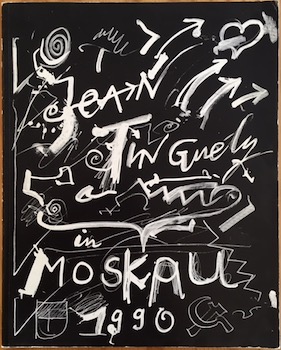 JEAN
TINGUELY
in
MOSKAU
1990